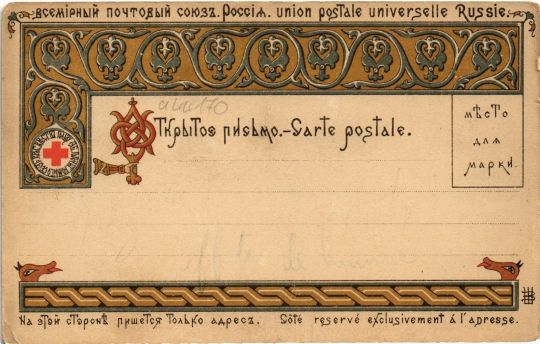 всемірный почтовый союзъ. Россія. union postale universelle Russie.
Открытое письмо.-Carte postale.
мѣсто
для
марки.
На этой сторонѣ пишется только адресъ. Côté reservé exclusivement á l'adresse.